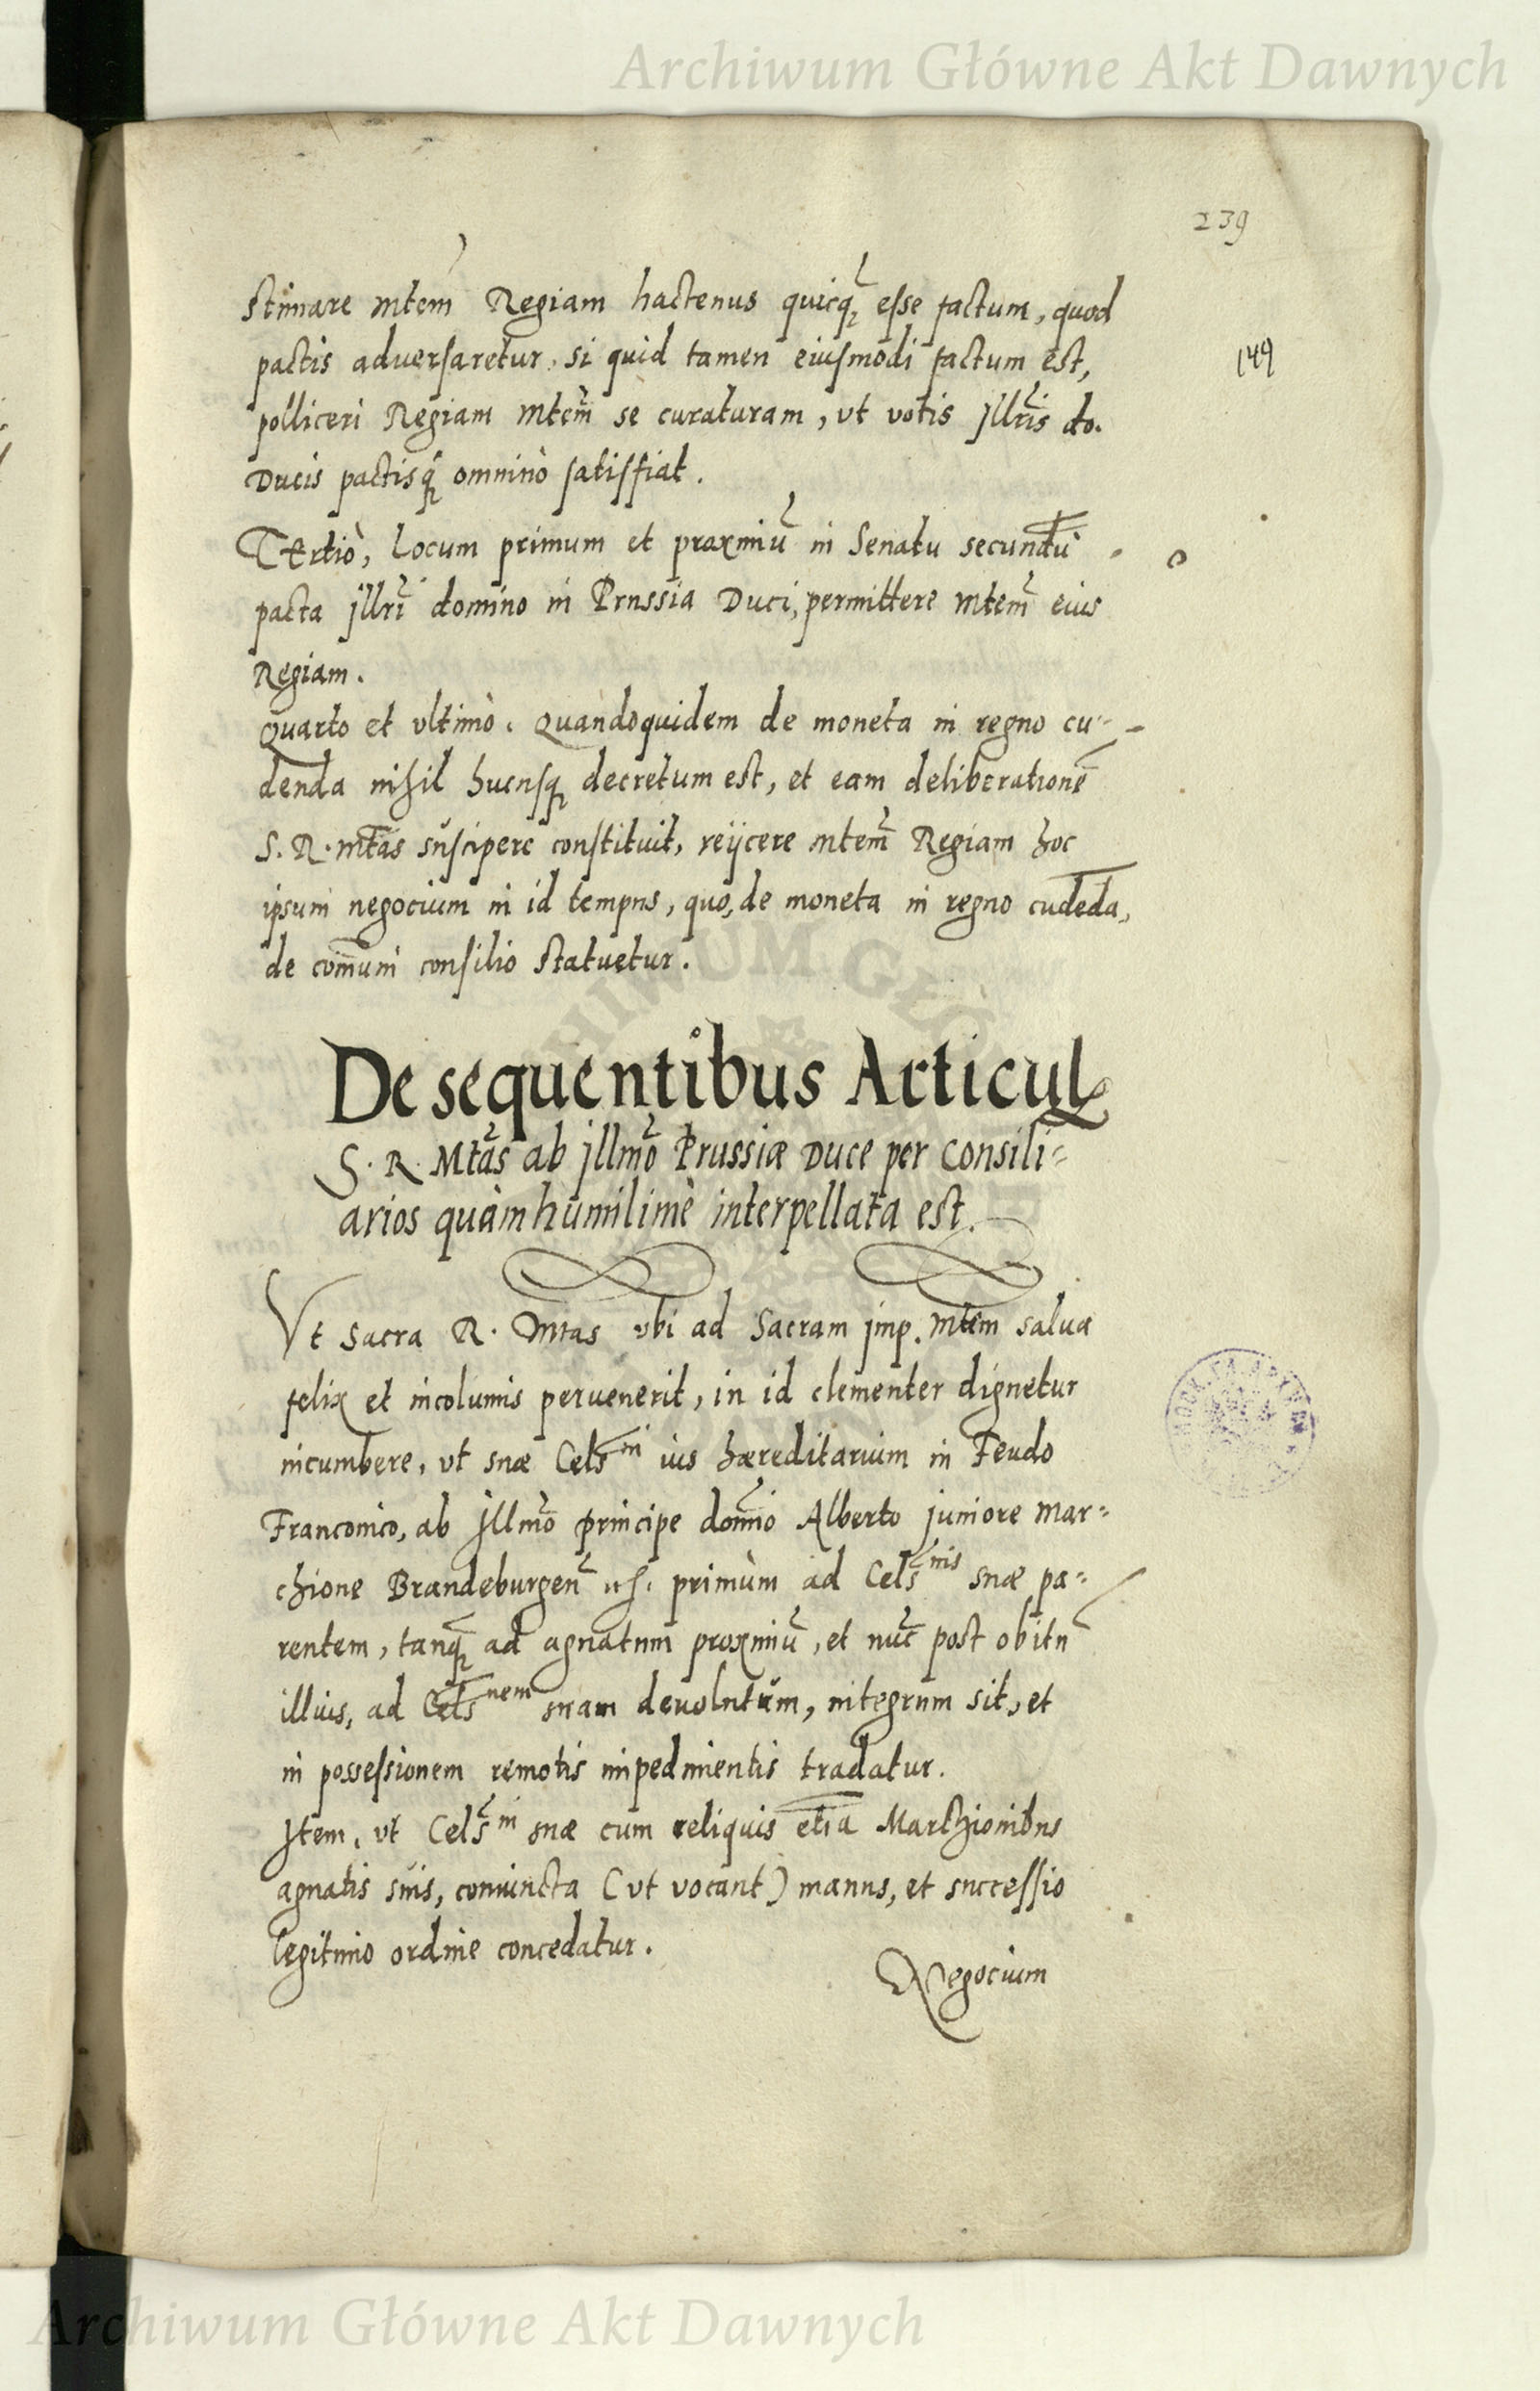 Archiwum Główne Akt Dawnych
239
stimare Mtem Regiam hactenus quicq; esse factum, quod
149
pactis adversaretur. si quid tamen eiusmodi factum est,
polliceri Regiam Mtem se curaturam, vt votis Jllris do.
Ducis pactisq; omninò satisfiat.
Tertiò, Locum primum et proximũ in Senatu secundũ
pacta Jllri domino in Prussia Duci, permittere Mtem eius
Regiam.
Quarto et vltimò. Quandoquidem de moneta in regno cu-
denda nihil hucusq; decretum est, et eam deliberationẽ
S. R. Mtas suscipere constituit, reijcere Mtem Regiam hoc
ipsum negocium in id tempus, quo, de moneta in regno cudẽda,
de com̃uni consilio statuetur.
De sequentibus Articul
S. R. Mtas ab Jllmo Prussiæ Duce per Consili-
arios quàm humilimè interpellata est.
Vt Sacra R. Mtas vbi ad Sacram Jmp. Mtem salua
felix et incolumis peruenerit, in id clementer dignetur
incumbere, vt suæ Cels^ni ius hæreditarium in Feudo
Franconico, ab Jllmo principe domino Alberto juniore Mar-
chione Brandeburgeñ primùm ad Cels^nis suæ pa-
rentem, tanq; ad agnatum proximũ, et nũc post obitũ
illius, ad Cels^nem suam deuolutum, integrum sit, et
in possessionem remotis impedimentis tradatur.
Jtem, vt Cels^ni suæ cum reliquis etiã Marchionibus
agnatis suis, coniuncta (vt vocant) manus, et successio
legitimo ordine concedatur.
Negocium
Archiwum Główne Akt Dawnych